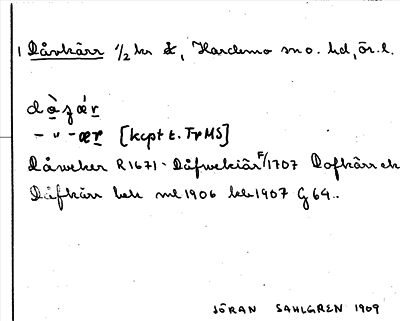 1 Dåvkärr 1/2 kr &, Hardemo sn o. hd, ör. l.
dåzǽr
– " – ær [kcpt t. Tr MS]
Dåweker R 1671 · Dåfwekiär F/1707 Dofkärr ek
Dåfkärr bek ml 1906 kb 1907 G 64..
JÖRAN SAHLGREN 1909